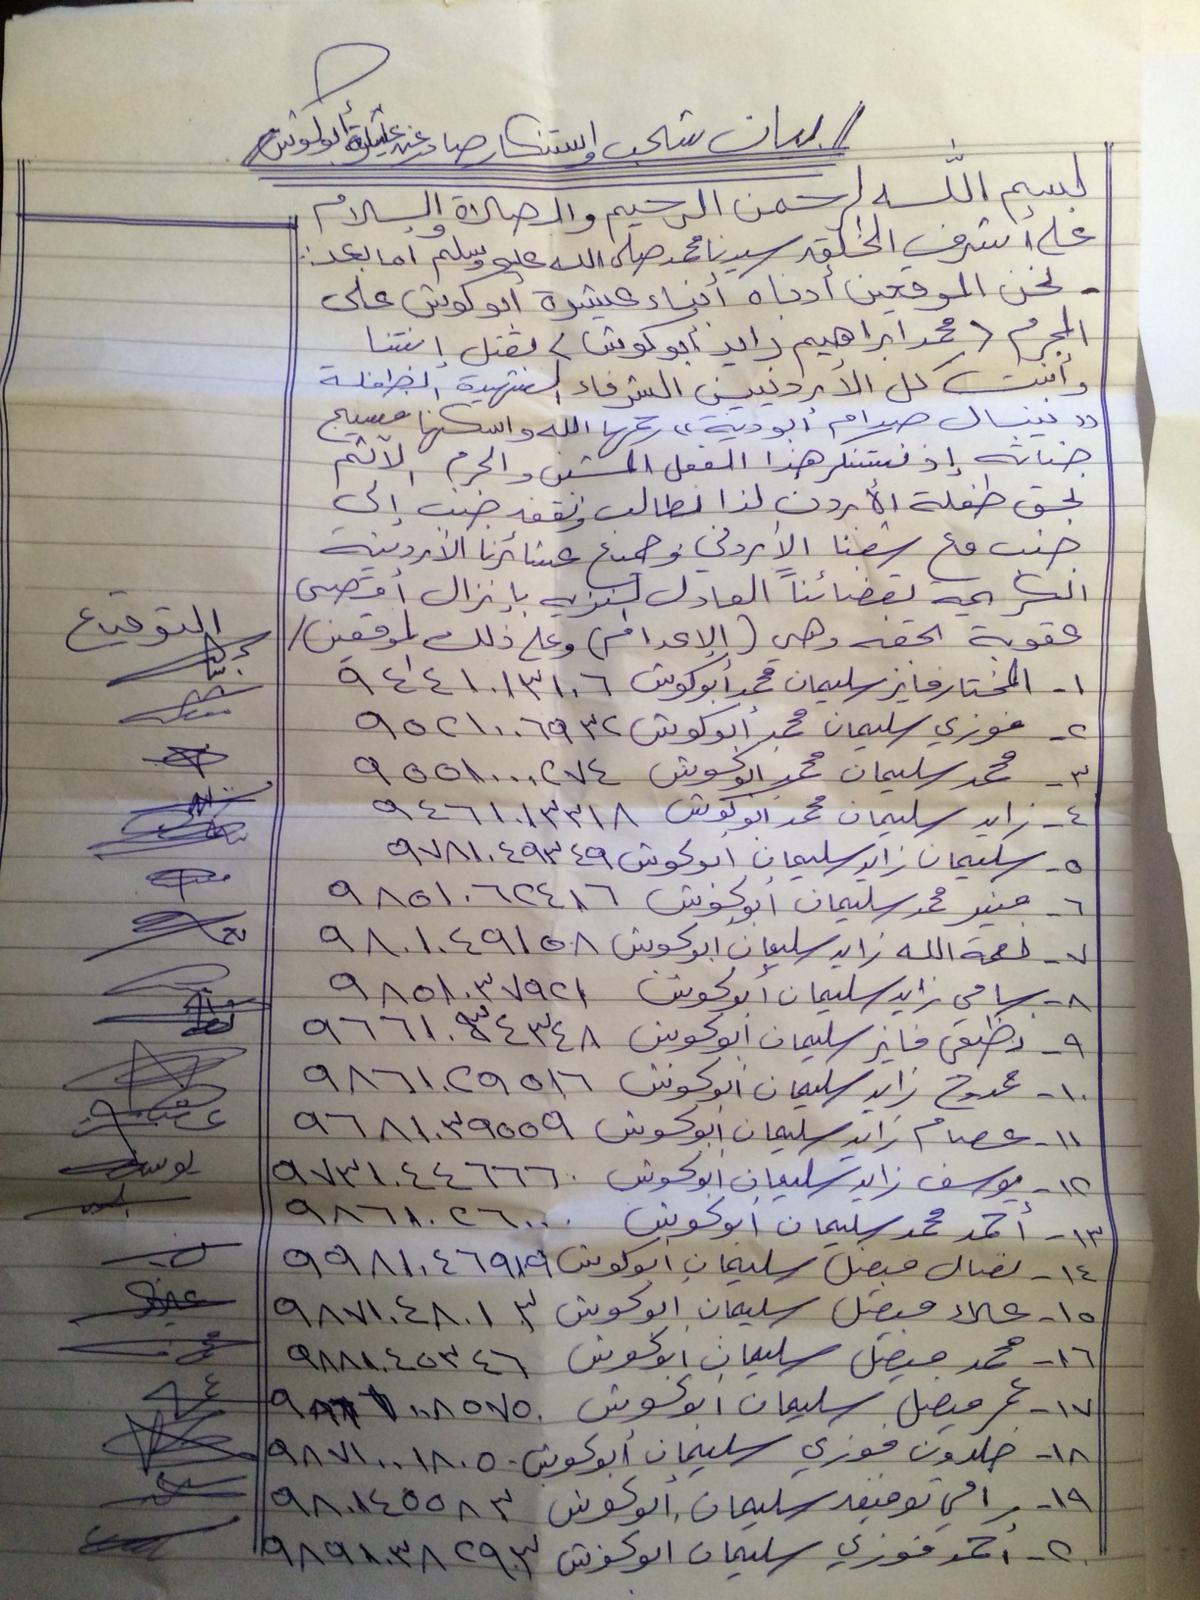 بيان شجب واستنكار صادر عن عشيرة أبوكوش
بسم الله الرحمن الرحيم والصلاة والسلام
على أشرف الخلق سيدنا محمد صلى الله عليه وسلم أما بعد:
- نحن الموقعين أدناه أبناء عشيرة أبو كوش على
المجرم (محمد ابراهيم زايد أبو كوش) بقتل إبنتنا
وأبنت كل الأردنيين الشرفاء الشهيدة الطفلة
"نيبال صدام أبودية" رحمها الله واسكنها فسيح
جناته إذ نستنكر هذا الفعل المشين والجرم الآثم
بحق طفلة الأردن لذا نطالب ونقف جنب إلى
جنب مع شعبنا الأردني وجميع عشائرنا الأردنية
الكريمة لقضائنا العادل النزيه بإنزال أقصى
عقوبة بحقه وهي (الإعدام) وعلى ذلك الموقعين/
التوقيع
١- المختار فايز سليمان محمد أبوكوش ٩٤٤١٠١٣١٠٦
٢- فوزي سليمان محمد أبوكوش ٩٥٢١٠٠٦٩٣٢
٣- محمد سليمان محمد ابوكوش ٩٥٥١٠٠٠٢٧٤
٤- زايد سليمان محمد ابوكوش ٩٤٦١٠١٣٣١٨
٥- سليمان زايد سليمان ابوكوش ٩٧٨١٠٤٩٣٤٩
٦- منير محمد سليمان أبوكوش ٩٨٥١٠٦٢٤١٦
٧- نعمة الله زايد سليمان ابوكوش ٩٨٠١٠٤٩١٥٨
٨- سامي زايد سليمان أبوكوش ٩٨٥١٠٣٧٩٢١
٩- فايز سليمان أبوكوش
١٠- ممدوح زايد سليمان ابوكوش ٩٨٦١٠٢٩٥١٦
١١- عصام زايد سليمان ابوكوش ٩٦٨١٠٣٩٥٥٩
١٢- يوسف زايد سليمان ابوكوش ٩٧٣١٠٤٤٦٦٦٠
١٣- أحمد محمد سليمان ابوكوش ٩٨٦١٠٢٦٠٠٠
١٤- نضال فيصل سليمان ابوكوش ٩٩٨١٠٤٦٩١٩
١٥- علاء فيصل سليمان ابوكوش ٩٨٧١٠٤٨٠١٣
١٦- محمد فيصل سليمان ابوكوش ٩٨٨١٠٤٥٣٤٦
١٧- عمر فيصل سليمان ابوكوش
١٨- خلدون فوزي سليمان أبوكوش ٩٨٧١٠٠١٨٠٥
١٩- رامي توفيق سليمان ابوكوش ٩٨٠١٤٥٥٨٣
٢٠- أحمد فوزي سليمان ابوكوش ٩٨٩١٠٣٨٢٩٣